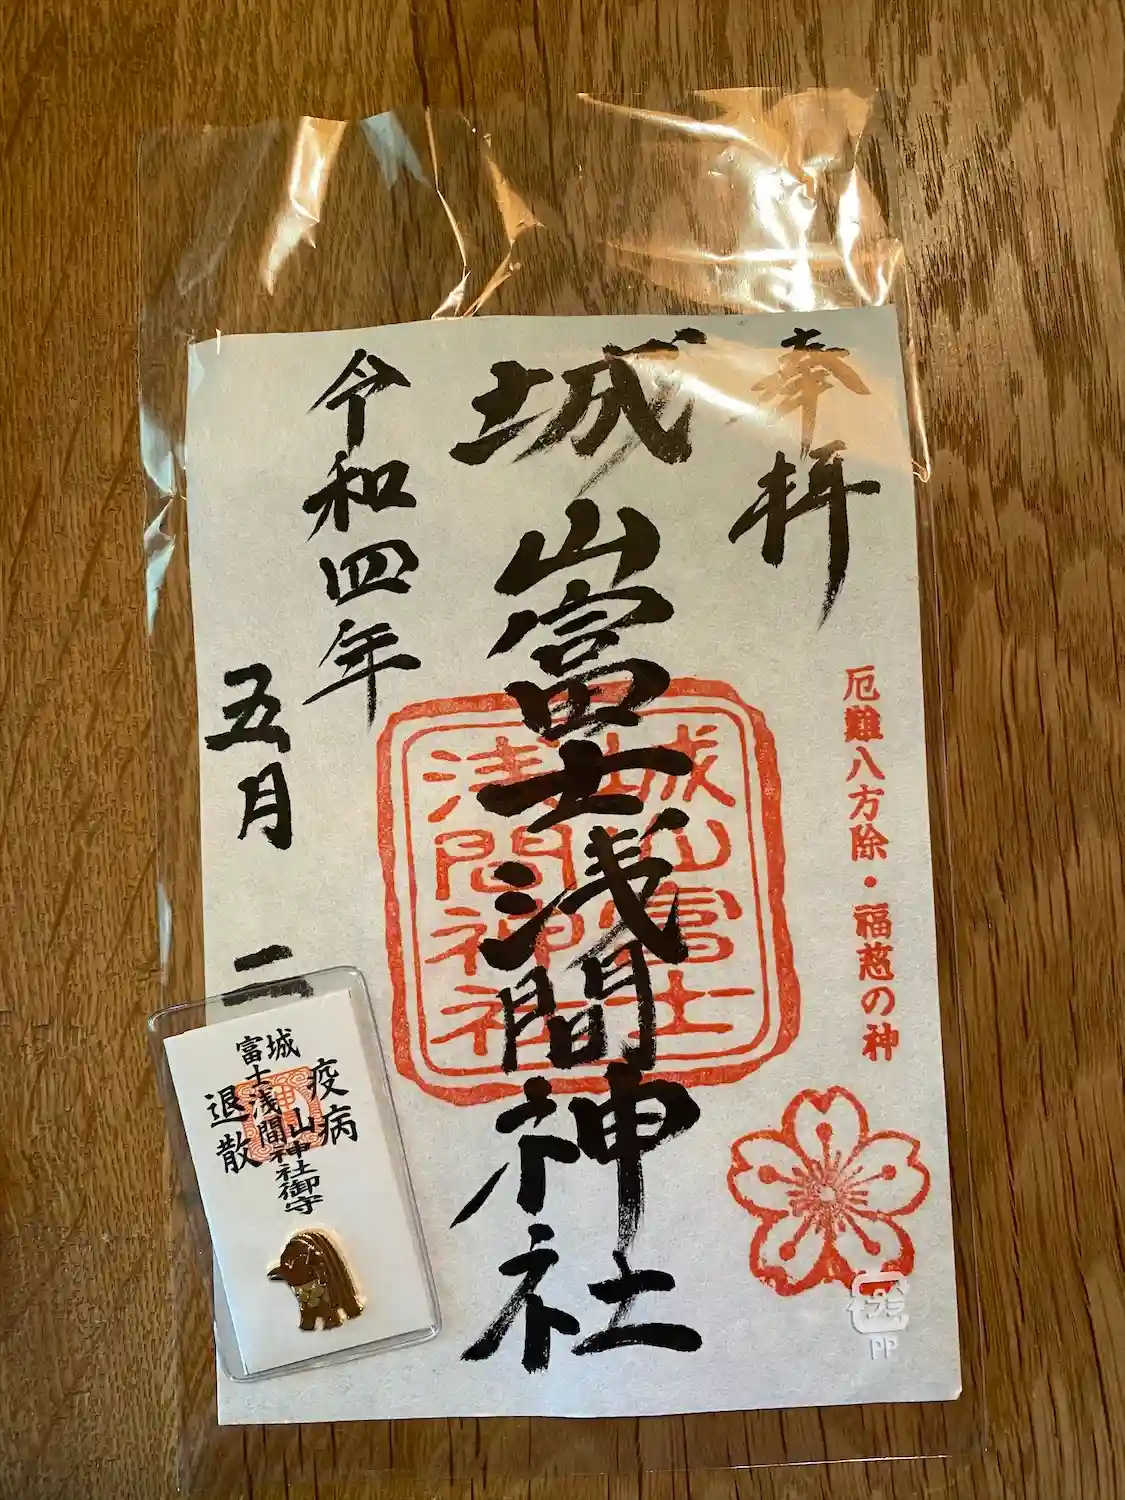 奉拝
厄難八方除・福慈の神
城山富士浅間神社
城山富士
浅間神社
令和四年
五月
疫病
城山神社御守
富士浅間
退散
プラ
PP